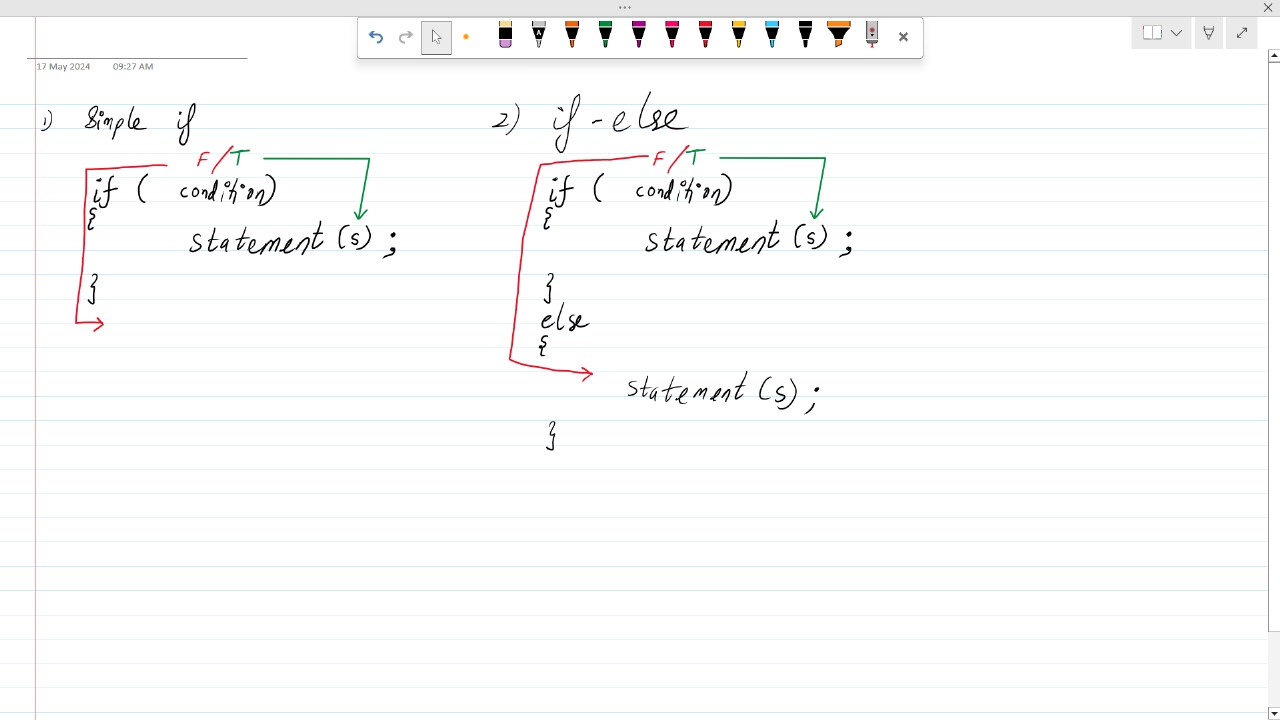 17 May 2024 09:27 AM
1) Simple if
F/T
if ( condition)
{
statement (s) ;
}
2) if - else
F/T
if ( condition)
{
statement (s) ;
}
else
{
statement (s) ;
}